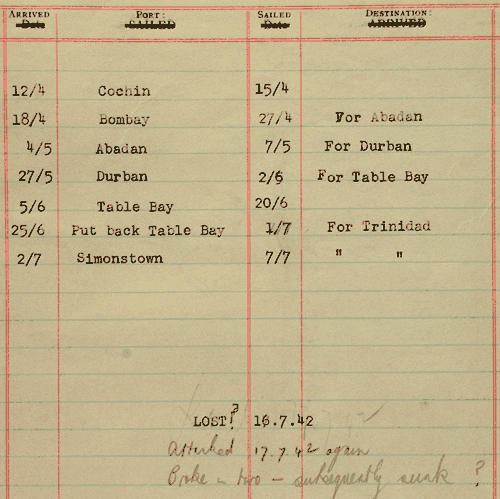 ARRIVED PORT: SAILED DESTINATION:
Date SAILED Date ARRIVED
12/4 Cochin 15/4
18/4 Bombay 27/4 For Abadan
4/5 Abadan 7/5 For Durban
27/5 Durban 2/6 For Table Bay
5/6 Table Bay 20/6
25/6 Put back Table Bay 1/7 For Trinidad
2/7 Simonstown 7/7 " "
LOST? 16.7.42
Attacked 17.7.42 again
Broke in two - subsequently sunk ?